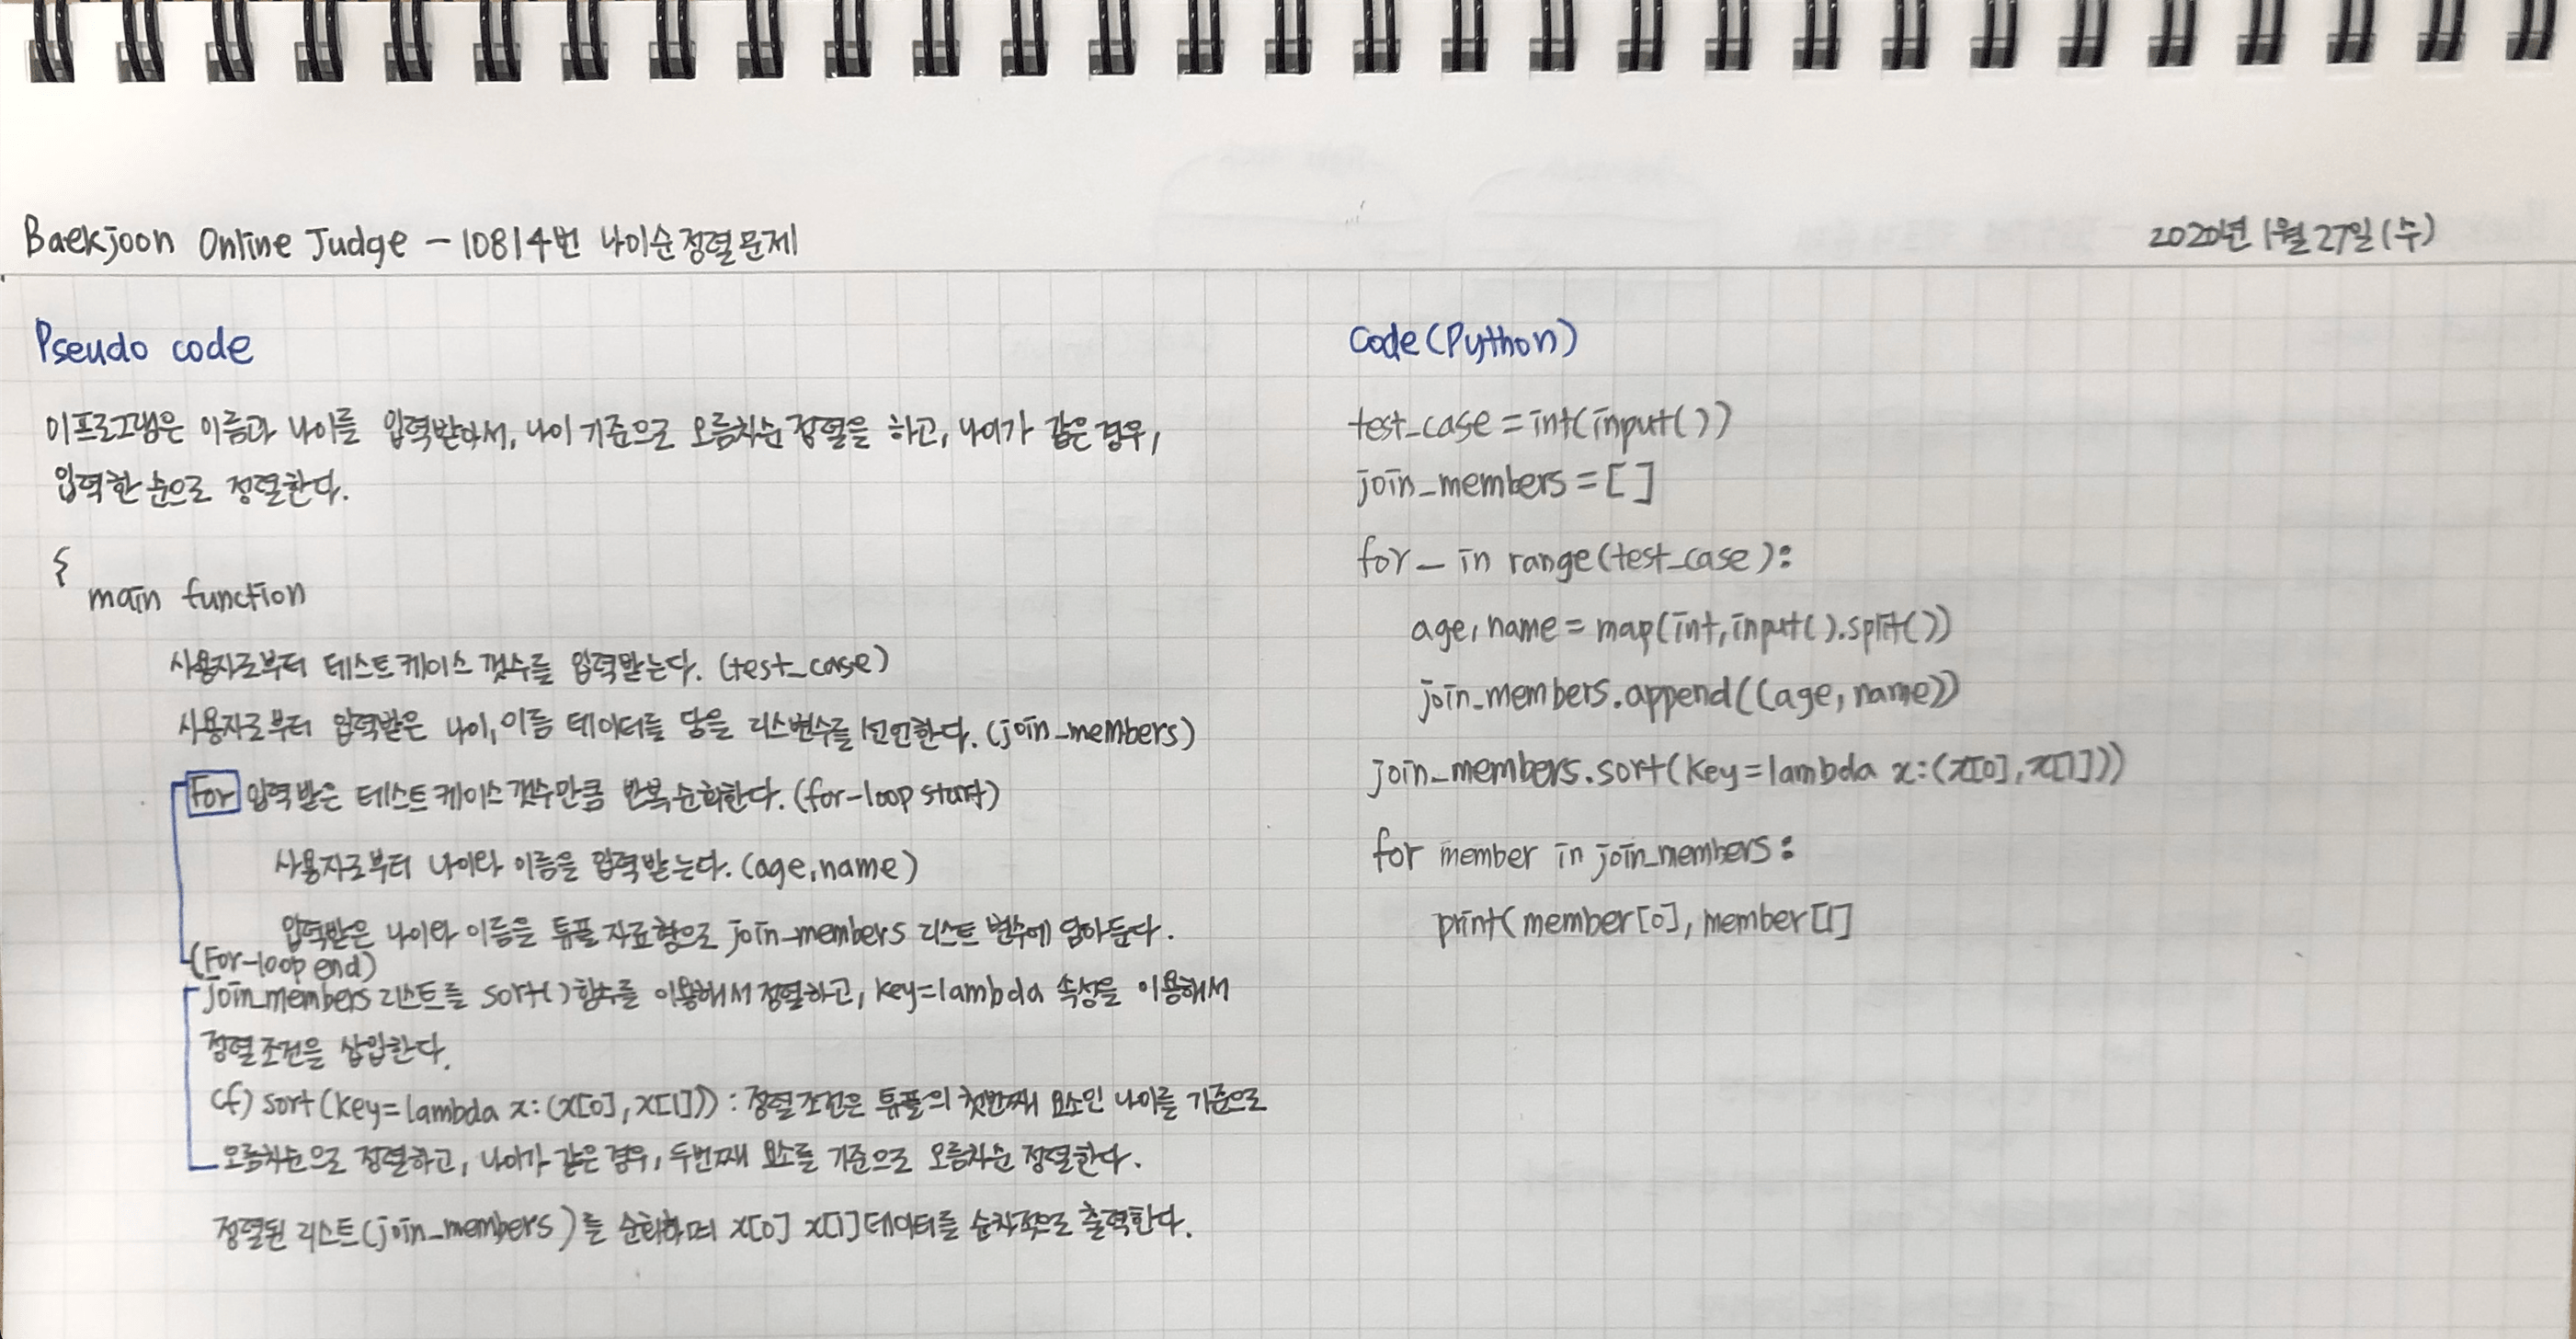 Baekjoon Online Judge - 10814번 나이순정렬문제
2020년 1월 27일 (수)
Pseudo code
이프로그램은 이름과 나이를 입력받아서, 나이 기준으로 오름차순 정렬을 하고, 나이가 같은 경우,
입력한 순으로 정렬한다.
{
main function
사용자로부터 테스트케이스 갯수를 입력받는다. (test_case)
사용자로부터 입력받은 나이, 이름 데이터를 담을 리스변수를 선언한다. (join_members)
For 입력받은 테스트케이스 갯수만큼 반복순회한다. (for-loop start)
사용자로부터 나이와 이름을 입력받는다. (age, name)
입력받은 나이와 이름을 튜플 자료형으로 join_members 리스트 변수에 담아둔다.
(For-loop end)
join_members 리스트를 sort() 함수를 이용해서 정렬하고, key=lambda 속성을 이용해서
정렬조건을 삽입한다.
cf) sort(key=lambda x:(x[0], x[1])) : 정렬조건은 튜플의 첫번째 요소인 나이를 기준으로
오름차순으로 정렬하고, 나이가 같은 경우, 두번째 요소를 기준으로 오름차순 정렬한다.
정렬된 리스트(join_members)를 순회하며 x[0] x[1] 데이터를 순차적으로 출력한다.
Code(Python)
test_case = int(input())
join_members = []
for _ in range(test_case):
age, name = map(int, input().split())
join_members.append((age, name))
join_members.sort(key=lambda x:(x[0], x[1]))
for member in join_members:
print(member[0], member[1]